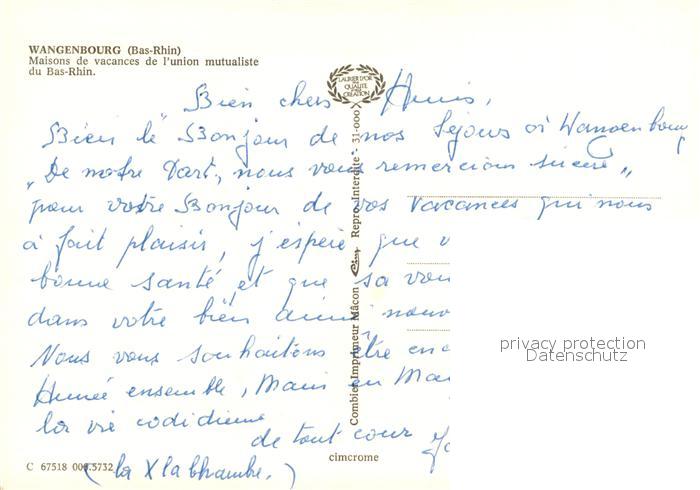 WANGENBOURG (Bas-Rhin)
Maisons de vacances de l'union mutualiste
du Bas-Rhin.
LAURIER D'OR
DE LA
QUALITÉ
CRÉATION
Bien chers
Bien le Bonjour de nos Séjours à Wangenbourg
„De notre Part, nous vous remercions sincère„
pour votre Bonjour de vos vacances qui nous
à fait plaisir, j'espère que v
bonne santé, et que sa vou
dans votre bien nouv
Nous vous souhaitons être enc
Année ensemble, Mais en Mai
la vie codidienne
de tout cour
(la X la bhambre.)
C 67518 000.3732
cimcrome
Combier Imprimeur Mâcon Cim Repro. Interdite - 31-000
privacy protection
Datenschutz